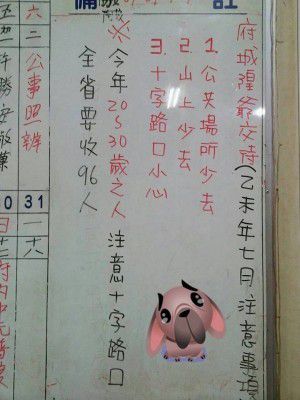 備註
府城隍爺交待(乙未年七月注意事項)
1.公共場所少去
2.山上少去
3.十字路口小心
※今年20~30歲之人 注意十字路口
全省要收96人
六二 公事照辦
31
一六